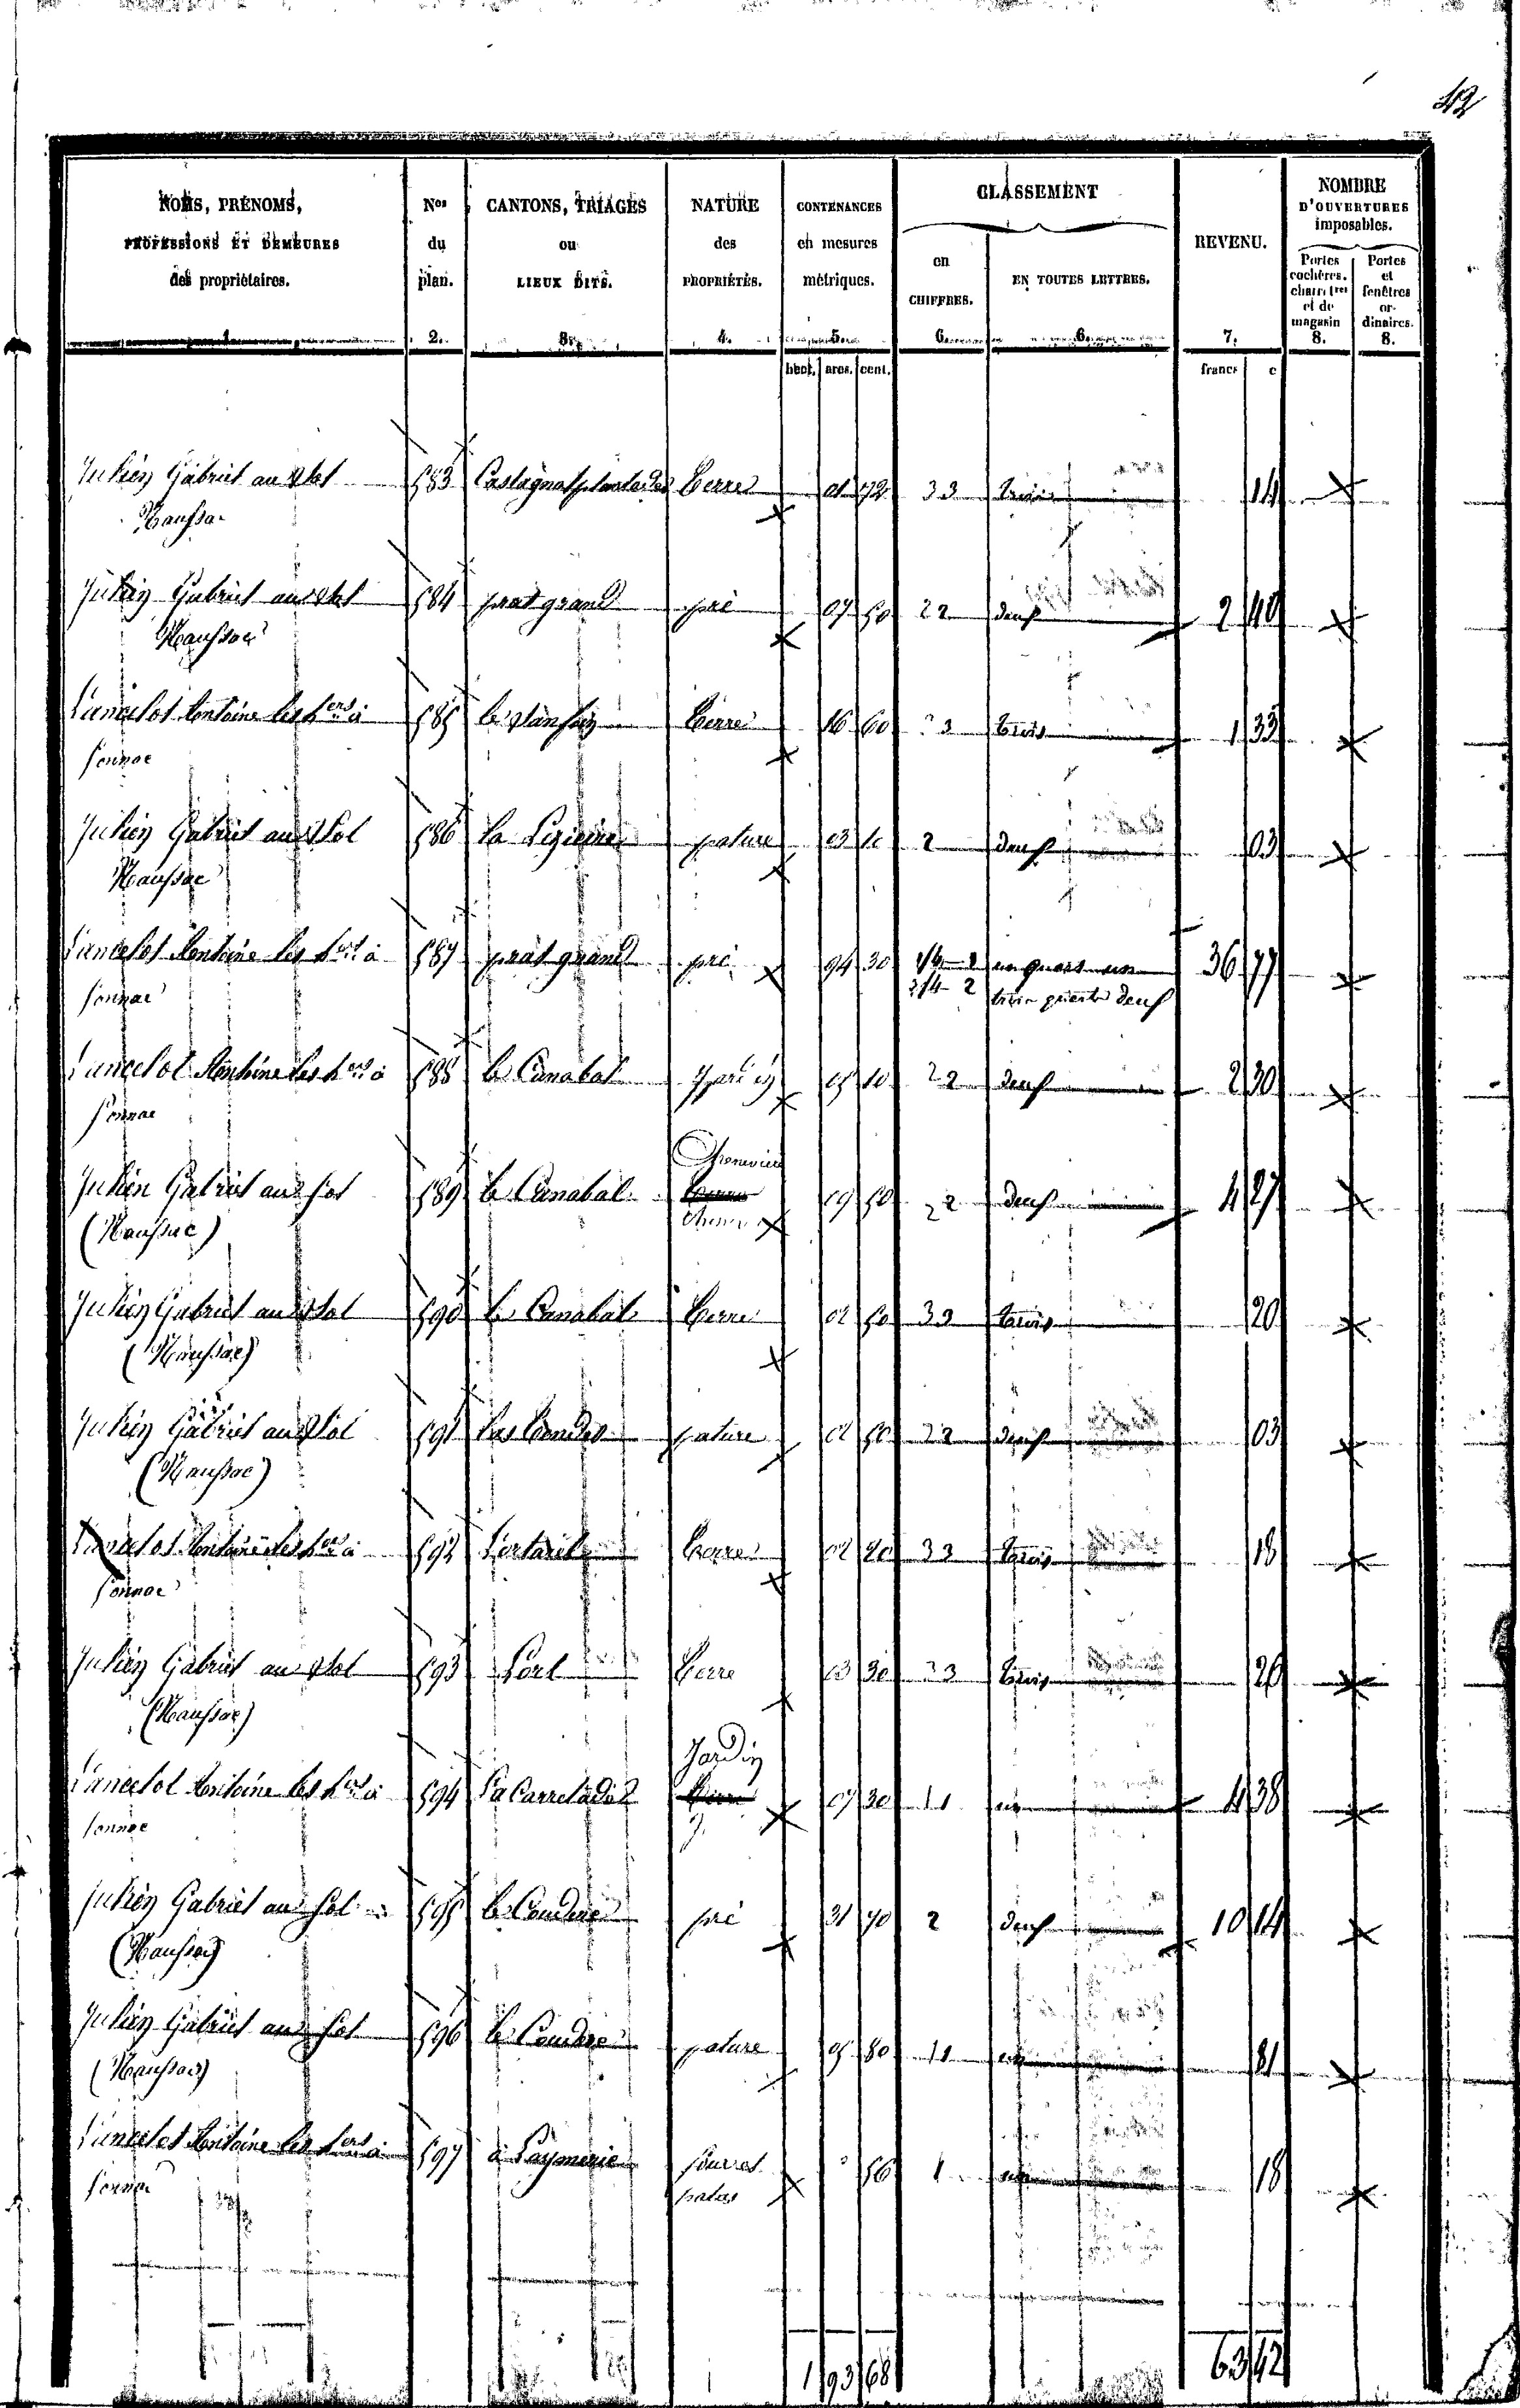 42
NOMS, PRÉNOMS,
PROFESSIONS ET DEMEURES
des propriétaires.
1.
Nos
du
plan.
2.
CANTONS, TRIAGES
ou
LIEUX DITS.
3.
NATURE
des
PROPRIÉTÉS.
4.
CONTENANCES
en mesures
métriques.
5.
CLASSEMENT
en
CHIFFRES.
6.
EN TOUTES LETTRES.
6.
REVENU.
7.
NOMBRE
D'OUVERTURES
imposables.
Portes
cochères.
charret res
et de
magasin
8.
Portes
et
fenêtres
or-
dinaires.
8.
hect. ares. cent. francs c
Julien Gabriel au Sol 583 Terre 01 72 33 trois 14
Julien Gabriel au Sol 584 prat grand pré 07 50 22 deux 2 40
Haussac
Lancelot Antoine les hers à 585 terre 16 60 3 trois 1 33
Sonnac
Julien Gabriel au Sol 586 la pature 03 2 deux 03
Haussac
Lancelot Antoine les hers à 587 prat grand pré 94 30 1/4 1 un quart un 36 77
Sonnac 3/4 2 trois quarts deux
Lancelot Antoine les hers à 588 le Canabal 10 22 deux 2 30
Sonnac
Chenevière
Julien Gabriel au Sol 589 le Canabal 19 50 22 deux 4 27
(Haussac)
Julien Gabriel au Sol 590 le Canabal terre 02 50 33 trois 20
(Haussac)
Julien Gabriel au Sol 591 pature 02 50 22 deux 03
(Haussac)
Lancelot Antoine les hers à 592 terre 02 20 33 trois 18
Sonnac
Julien Gabriel au Sol 593 terre 03 30 33 trois 26
(Haussac)
Jardin
Lancelot Antoine les hers à 594 La Carretade 07 30 11 un 4 38
Sonnac j.
Julien Gabriel au Sol 595 le pré 31 70 2 deux 10 14
(Haussac)
Julien Gabriel au Sol 596 le pature 05 80 11 un 81
(Haussac)
Lancelot Antoine les hers à 597 56 1 un 18
Sonnac patus
1 93 68 63 42